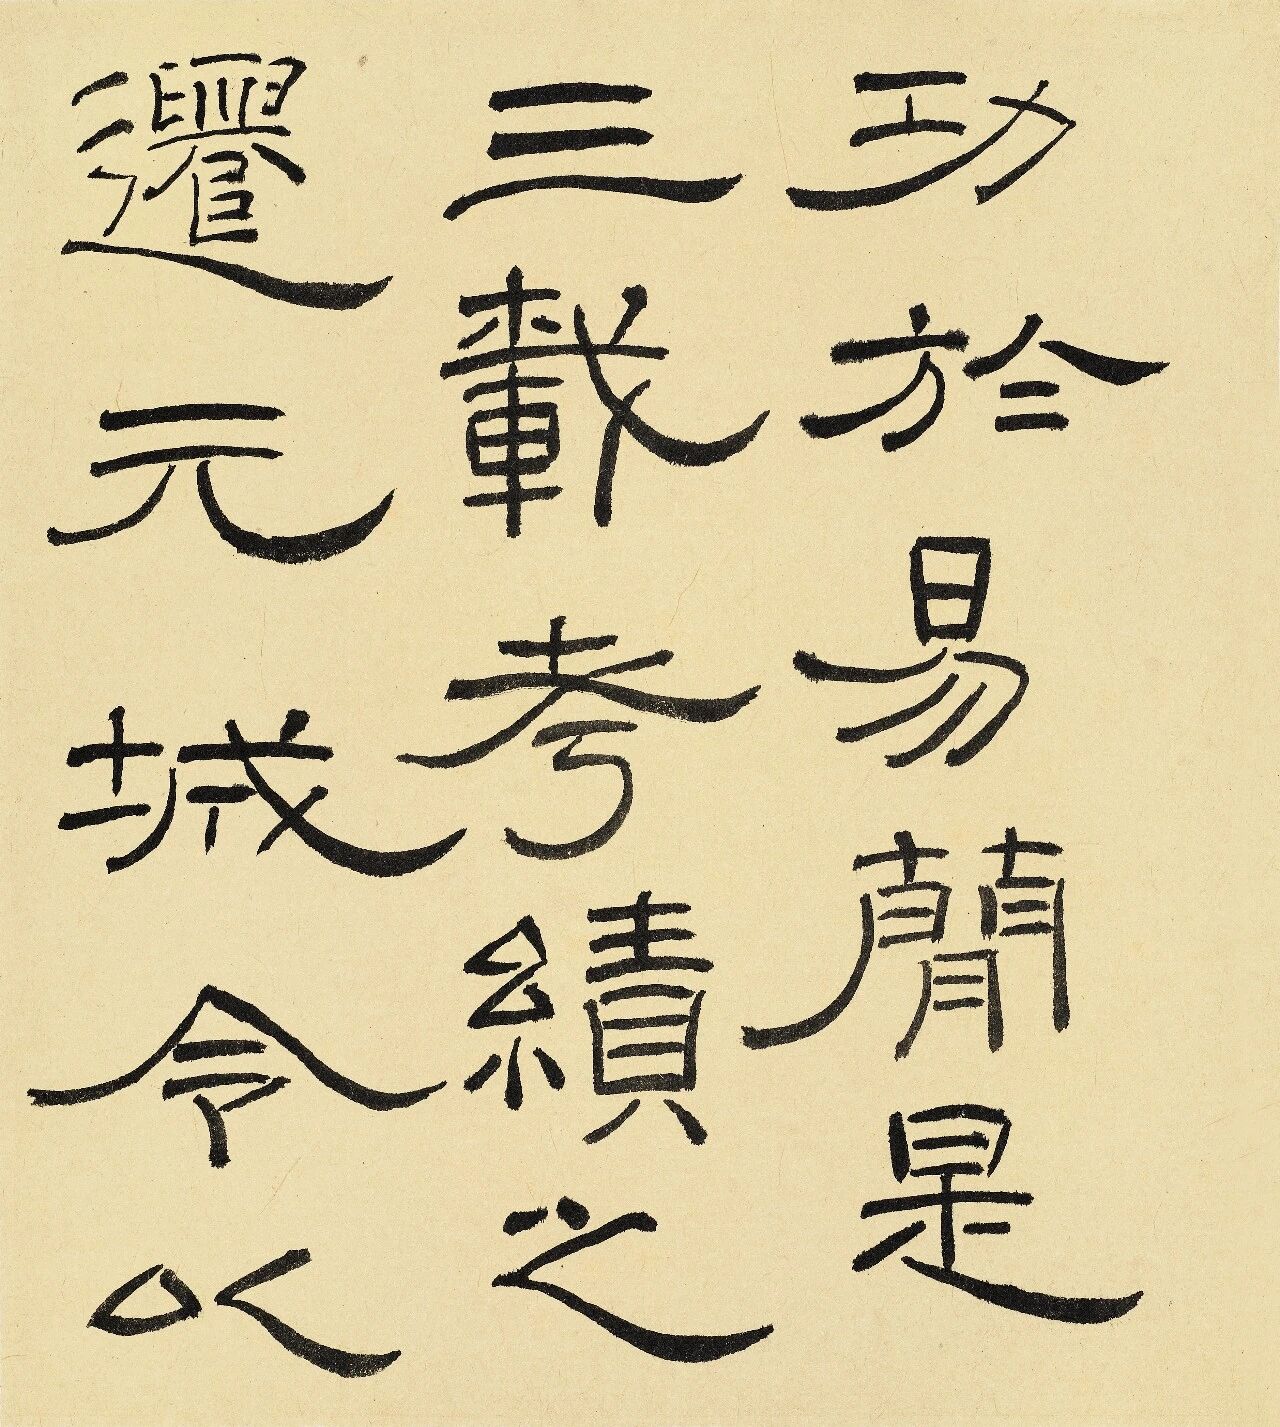 功於易簡是
三載考績之
遷元城令以